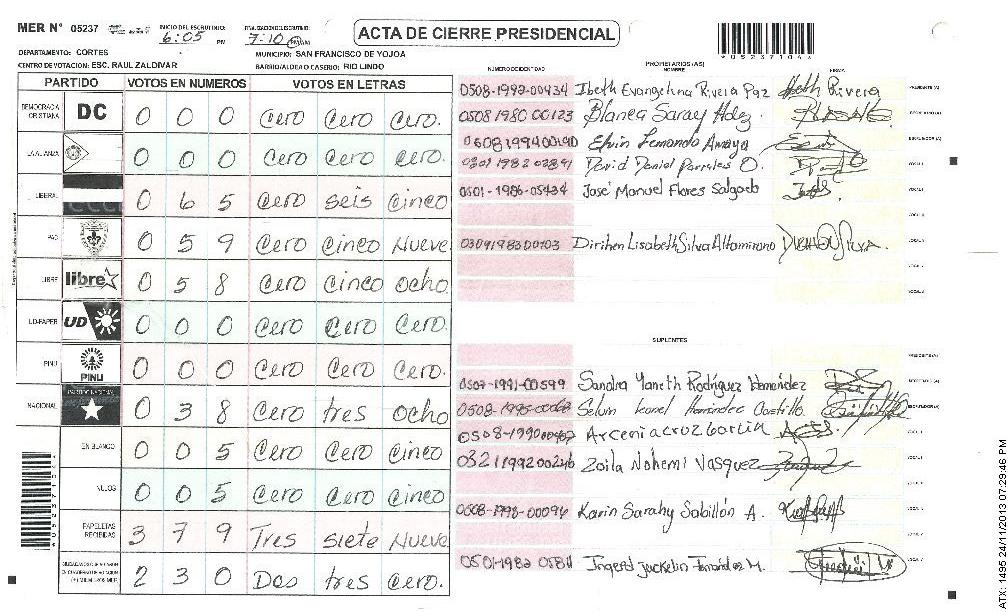 MER Nº 05237 INICIO DEL ESCRUTINIO: 6:05 PM FINALIZACION DEL ESCRUTINIO: 7:10 PM
ACTA DE CIERRE PRESIDENCIAL
DEPARTAMENTO: CORTES MUNICIPIO: SAN FRANCISCO DE YOJOA
CENTRO DE VOTACION: ESC. RAUL ZALDIVAR BARRIO/ALDEA O CASERIO: RIO LINDO
PARTIDO VOTOS EN NUMEROS VOTOS EN LETRAS
DEMOCRACIA CRISTIANA DC 0 0 0 Cero Cero Cero.
LA ALIANZA 0 0 0 Cero Cero Cero.
LIBERAL 0 6 5 Cero seis cinco
PAC 0 5 9 Cero cinco Nueve
LIBRE libre 0 5 8 Cero cinco ocho
UD-FAPER UD 0 0 0 Cero Cero Cero.
PINU PINU 0 0 0 Cero Cero Cero.
NACIONAL 0 3 8 Cero tres ocho
EN BLANCO 0 0 5 Cero Cero Cinco
NULOS 0 0 5 Cero Cero Cinco
PAPELETAS RECIBIDAS 3 7 9 Tres siete Nueve
2 3 0 Dos tres cero.
NUMERO DE IDENTIDAD PROPIETARIOS (AS) NOMBRE FIRMA
0508-1992-00434 Ibeth Evangelina Rivera Paz PRESIDENTE (A)
0508 1980 00123 Blanca Saray Hdez. SECRETARIO (A)
Elvin Fernando Amaya ESCRUTADOR (A)
David Daniel Parrales O.
0501-1986-05434 José Manuel Flores Salgado
Dirihen Lisabeth Silva Altamirano
SUPLENTES
PRESIDENTE (A)
0507-1991-00599 Sandra Yaneth Rodríguez Hernández SECRETARIO (A)
Selvin Leonel Hernández Castillo ESCRUTADOR (A)
Arcenia cruz Garcia
0321 1992 00246 Zoila Nohemi Vasquez
0508-1998-00094 Karin Sarahy Sabillón A.
Ingerd Jackelin Fernández M.
*05237104*
ATX: 1495 24/11/2013 07:29:46 PM